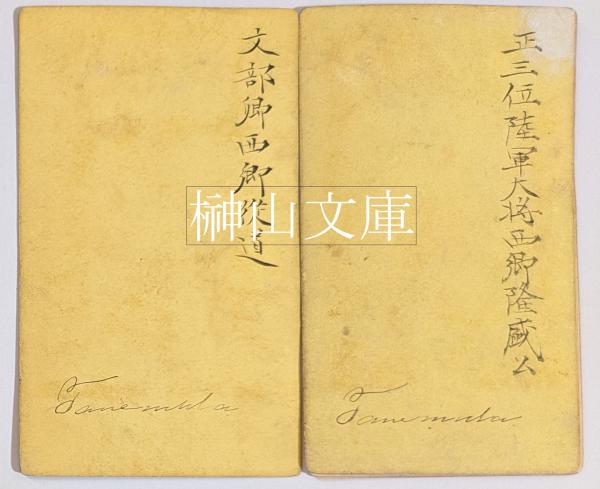 正三位陸軍大将西郷隆盛公
文部卿西郷従道
榊山文庫
Tanemula
Tanemula